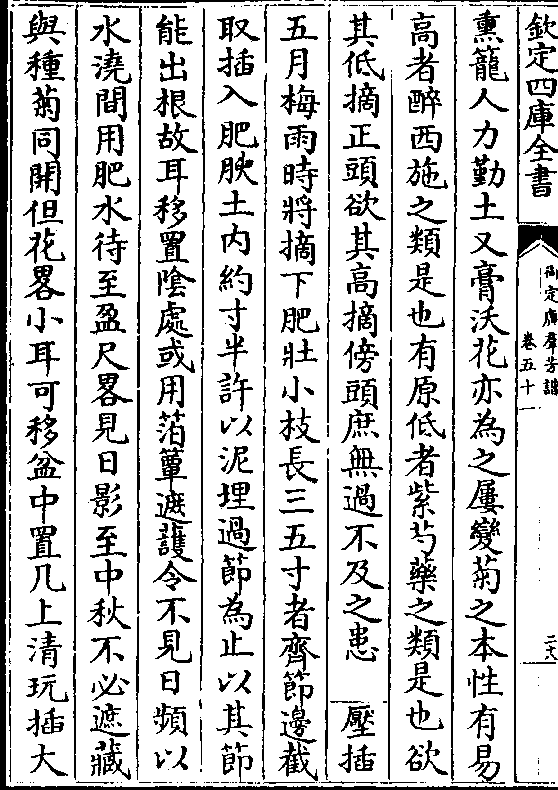 欽定四庫全書
御定廣羣芳譜
卷五十一
二六
熏籠人力勤土又膏沃花亦為之屢變菊之本性有易
高者醉西施之類是也有原低者紫芍藥之類是也欲
其低摘正頭欲其高摘傍頭庶無過不及之患　壓插
五月梅雨時將摘下肥壯小枝長三五寸者齊節邊截
取插入肥腴土内約寸半許以泥埋過節為止以其節
能出根故耳移置陰處或用箔簟遮䕶令不見日頻以
水澆間用肥水待至盈尺畧見日影至中秋不必遮藏
與種菊同開但花畧小耳可移盆中置几上清玩插大